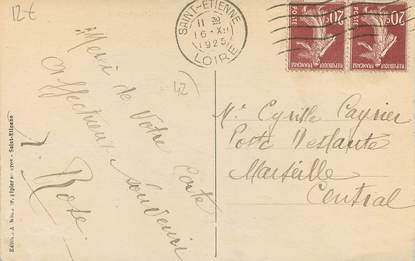 12-€
SAINT-ETIENNE
11 30
16-XII
1925
LOIRE
RÉPUBLIQUE FRANÇAISE
20c POSTES
RÉPUBLIQUE FRANÇAISE
20c POSTES
42
Merci de Votre Carte
affectueux Souvenir
Rose
Mr Cyrille Cayrier
Poste Restante
Marseille
Central
Saint-Etienne